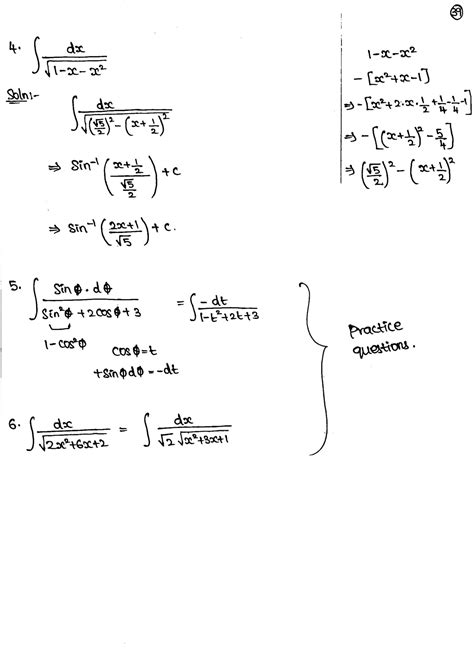 39
4. ∫ dx / √(1-x-x²)
Soln:-
∫ dx / √((√5/2)² - (x+1/2)²)
⇒ Sin⁻¹ ( (x+1/2) / (√5/2) ) + c
⇒ Sin⁻¹ ( (2x+1) / √5 ) + c.
1-x-x²
- [x²+x-1]
⇒ - [x²+2·x·1/2+1/4-1/4-1]
⇒ - [(x+1/2)² - 5/4]
⇒ (√5/2)² - (x+1/2)²
5. ∫ Sinϕ·dϕ / (Sin²ϕ+2cosϕ+3) = ∫ -dt / (1-t²+2t+3)
1-cos²ϕ
cosϕ=t
+sinϕdϕ=-dt
6. ∫ dx / √(2x²+6x+2) = ∫ dx / (√2 √(x²+3x+1))
Practice
questions.